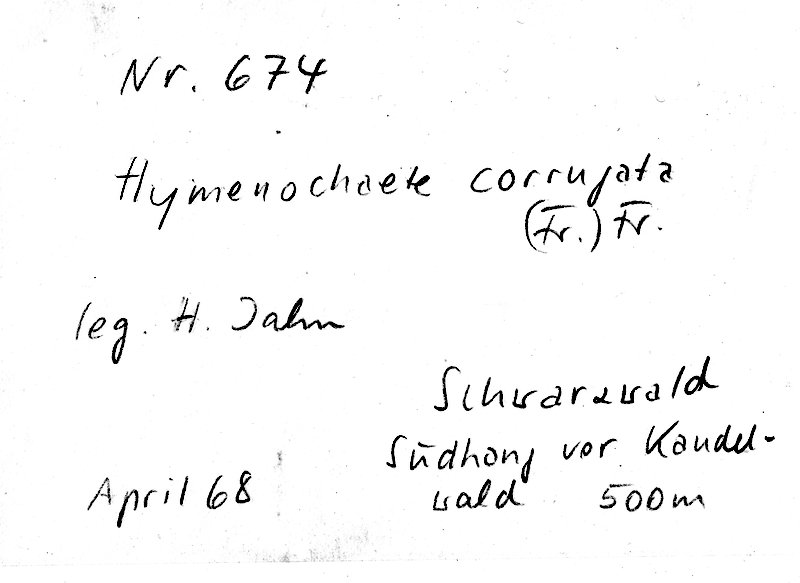 Nr. 674
Hymenochaete corrugata
(Fr.) Fr.
leg. H. Jahn
Schwarzwald
Südhang vor Kandel-
wald 500m
April 68